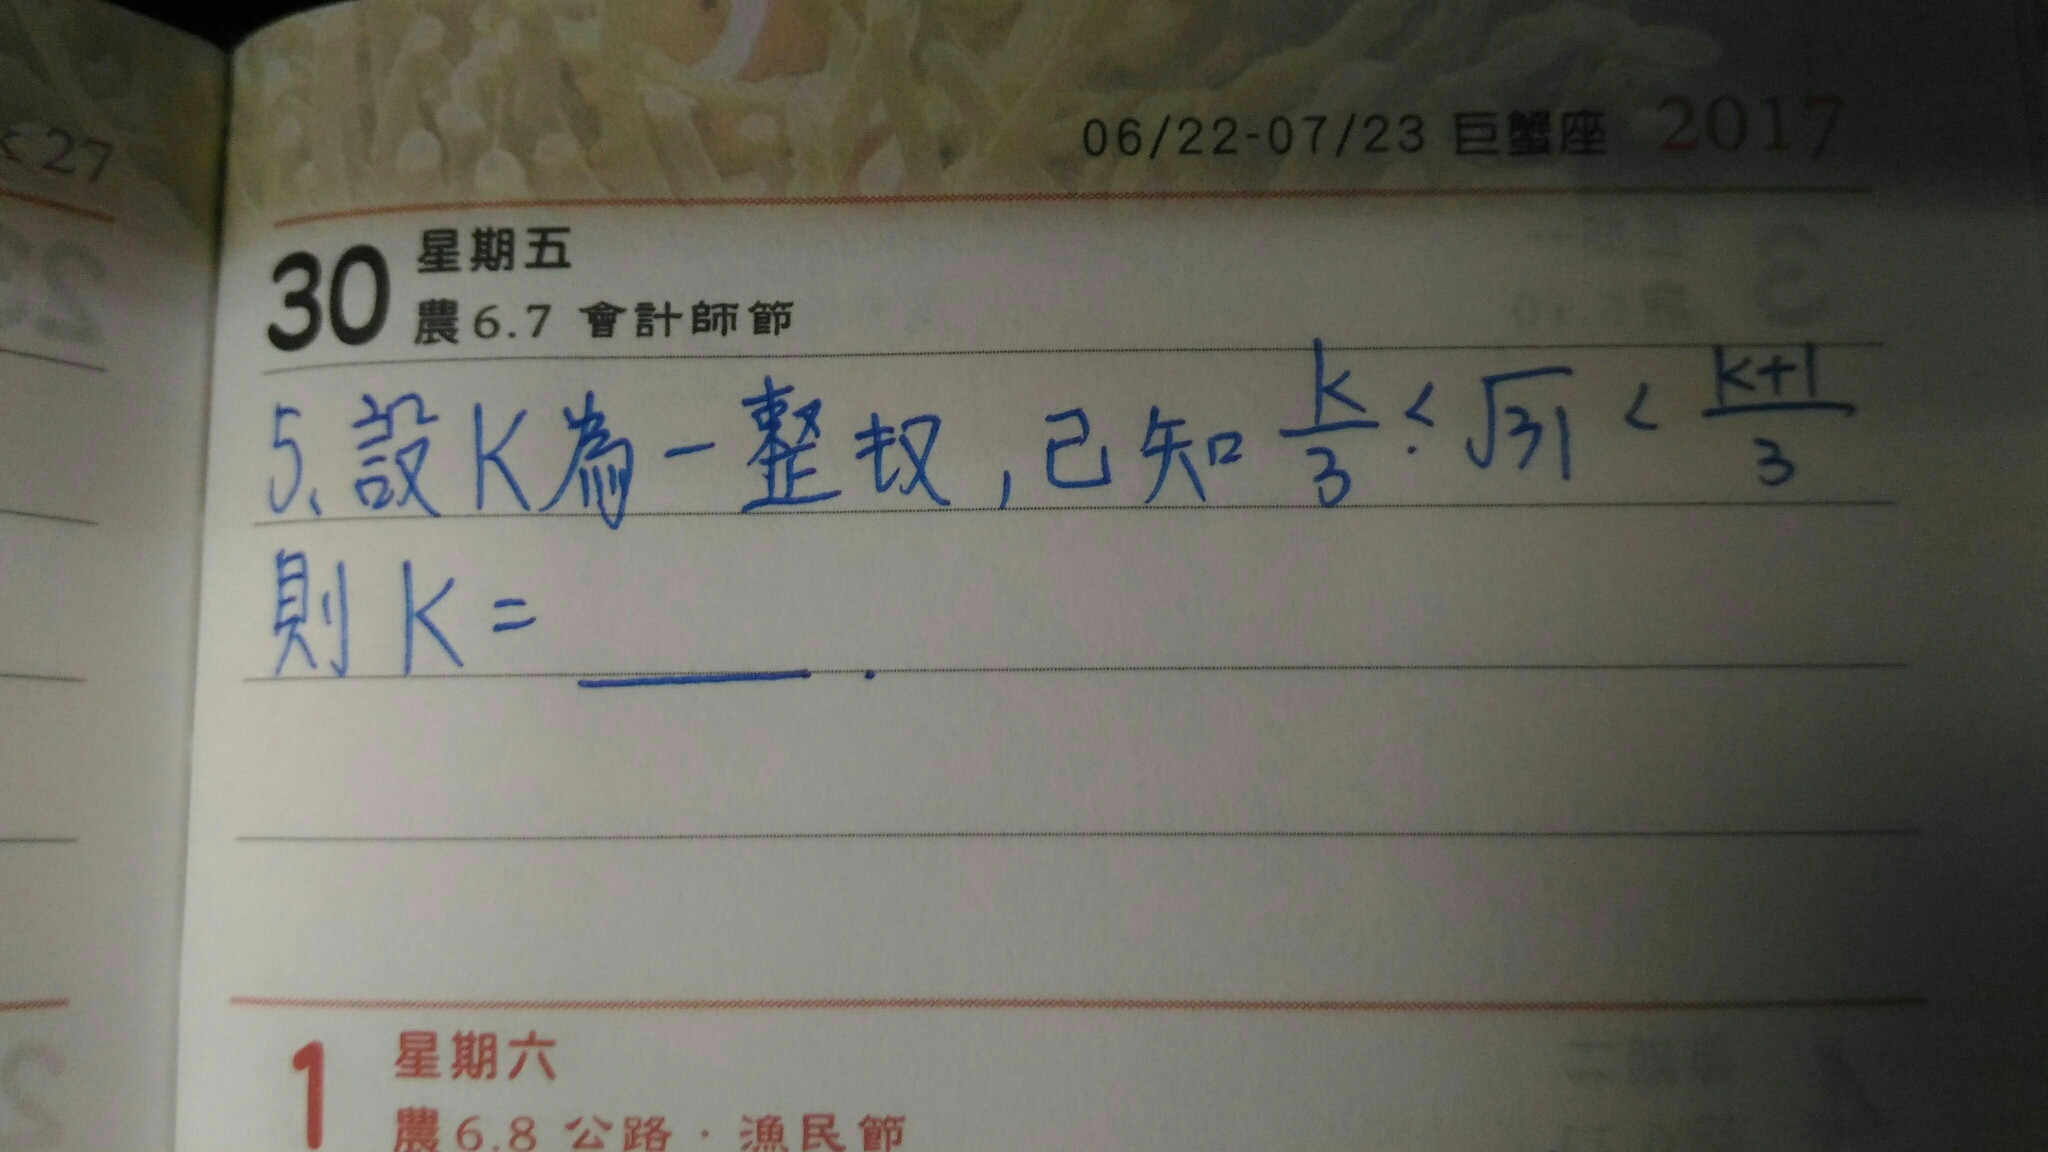 27
06/22-07/23 巨蟹座 2017
30 星期五
農6.7 會計師節
5、設K為一整数,已知 k/3 < √31 < k+1/3
則 K = ______ .
1 星期六
農6.8 公路·漁民節